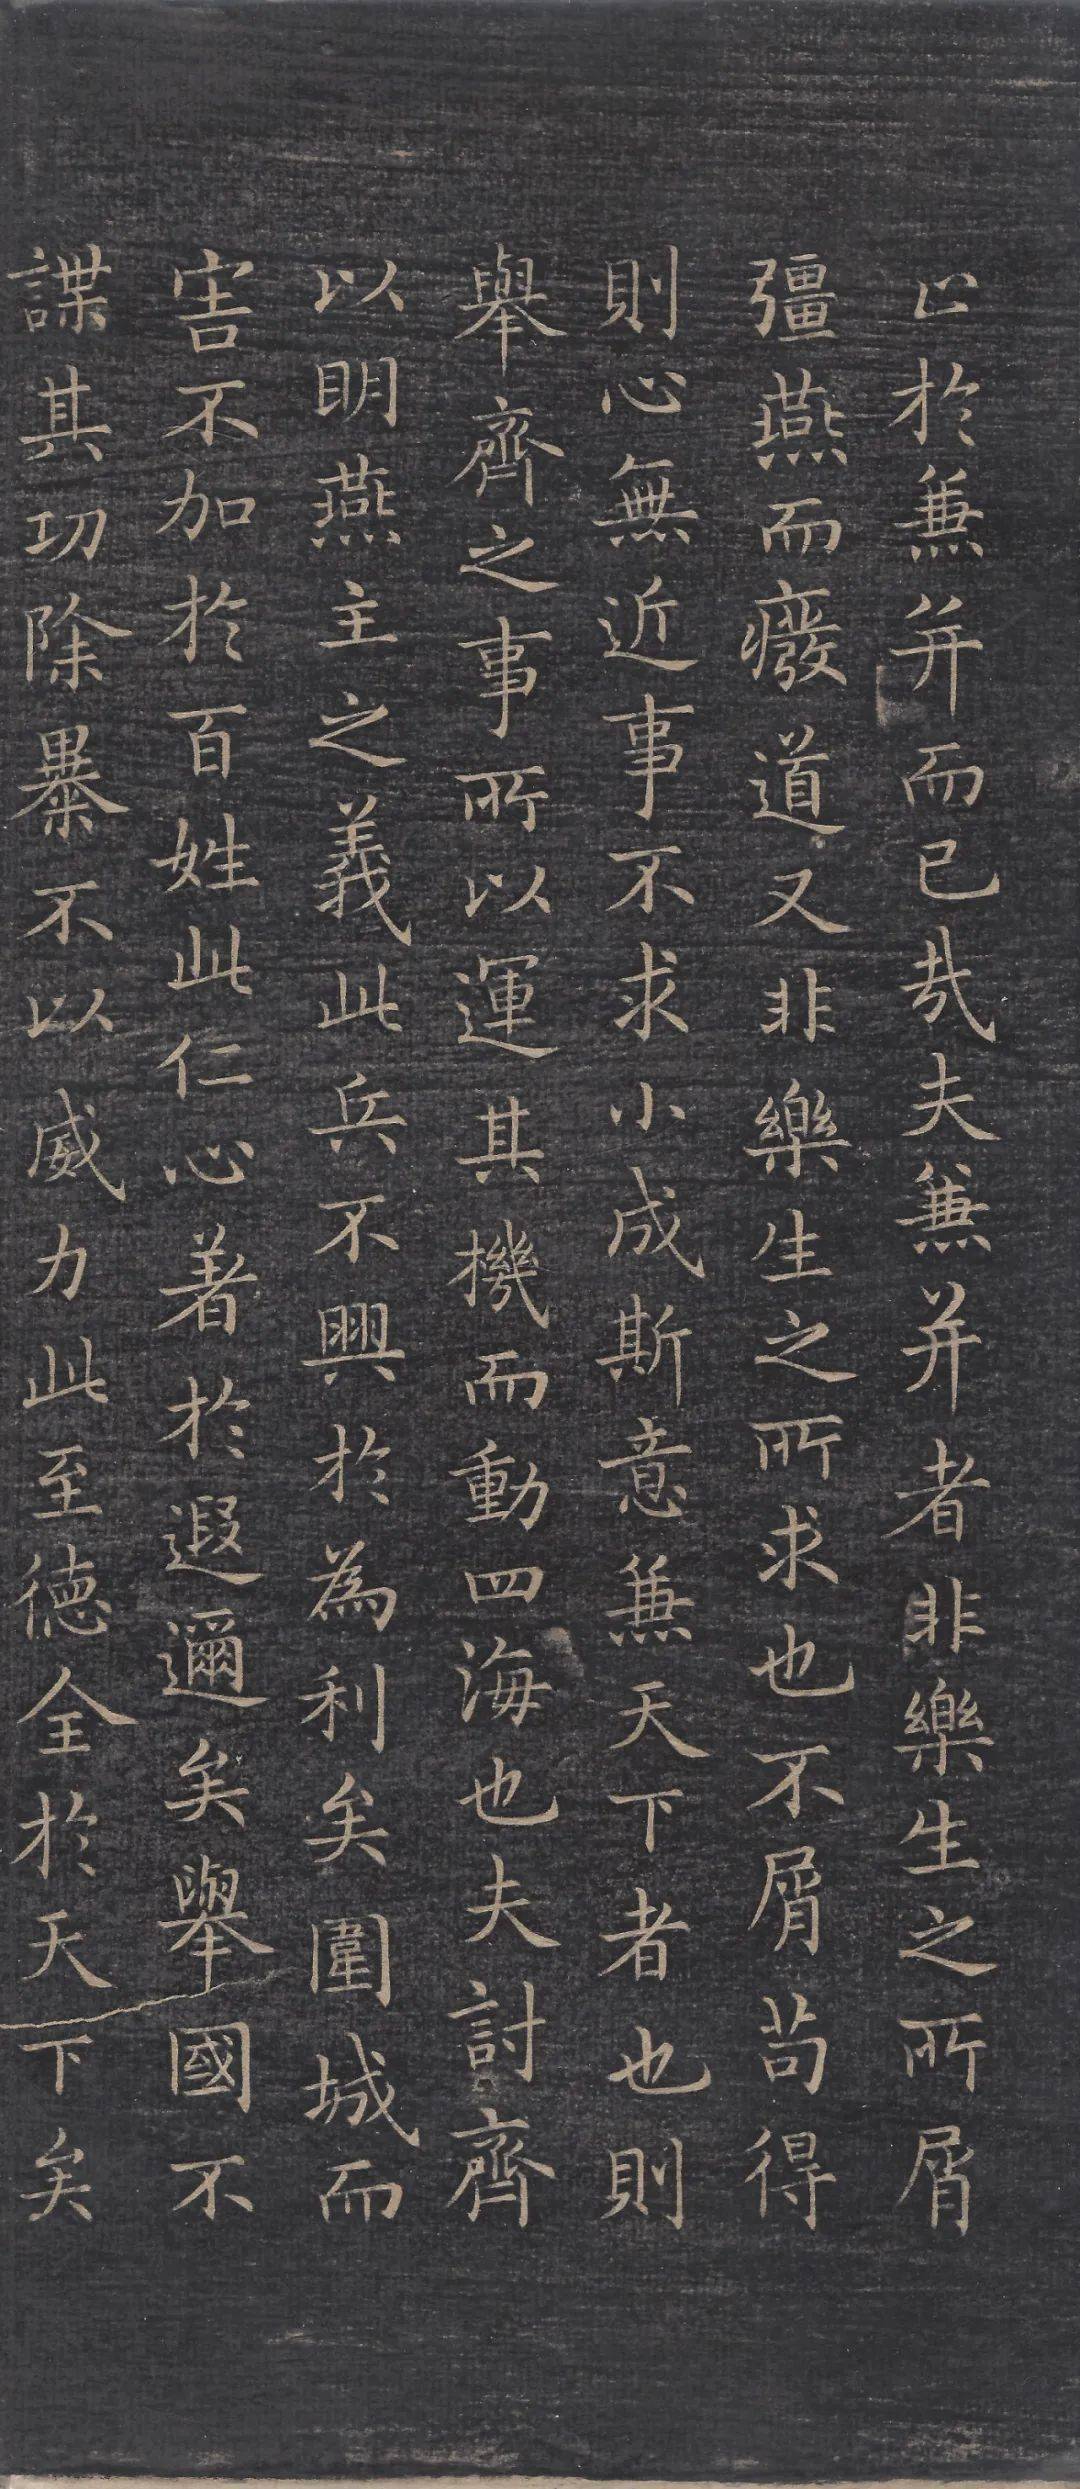 止於兼并而已哉夫兼并者非樂生之所屑
彊燕而癈道又非樂生之所求也不屑苟得
則心無近事不求小成斯意兼天下者也則
舉齊之事所以運其機而動四海也夫討齊
以明燕主之義此兵不興於為利矣圍城而
害不加於百姓此仁心著於遐邇矣舉國不
謀其功除暴不以威力此至德全於天下矣